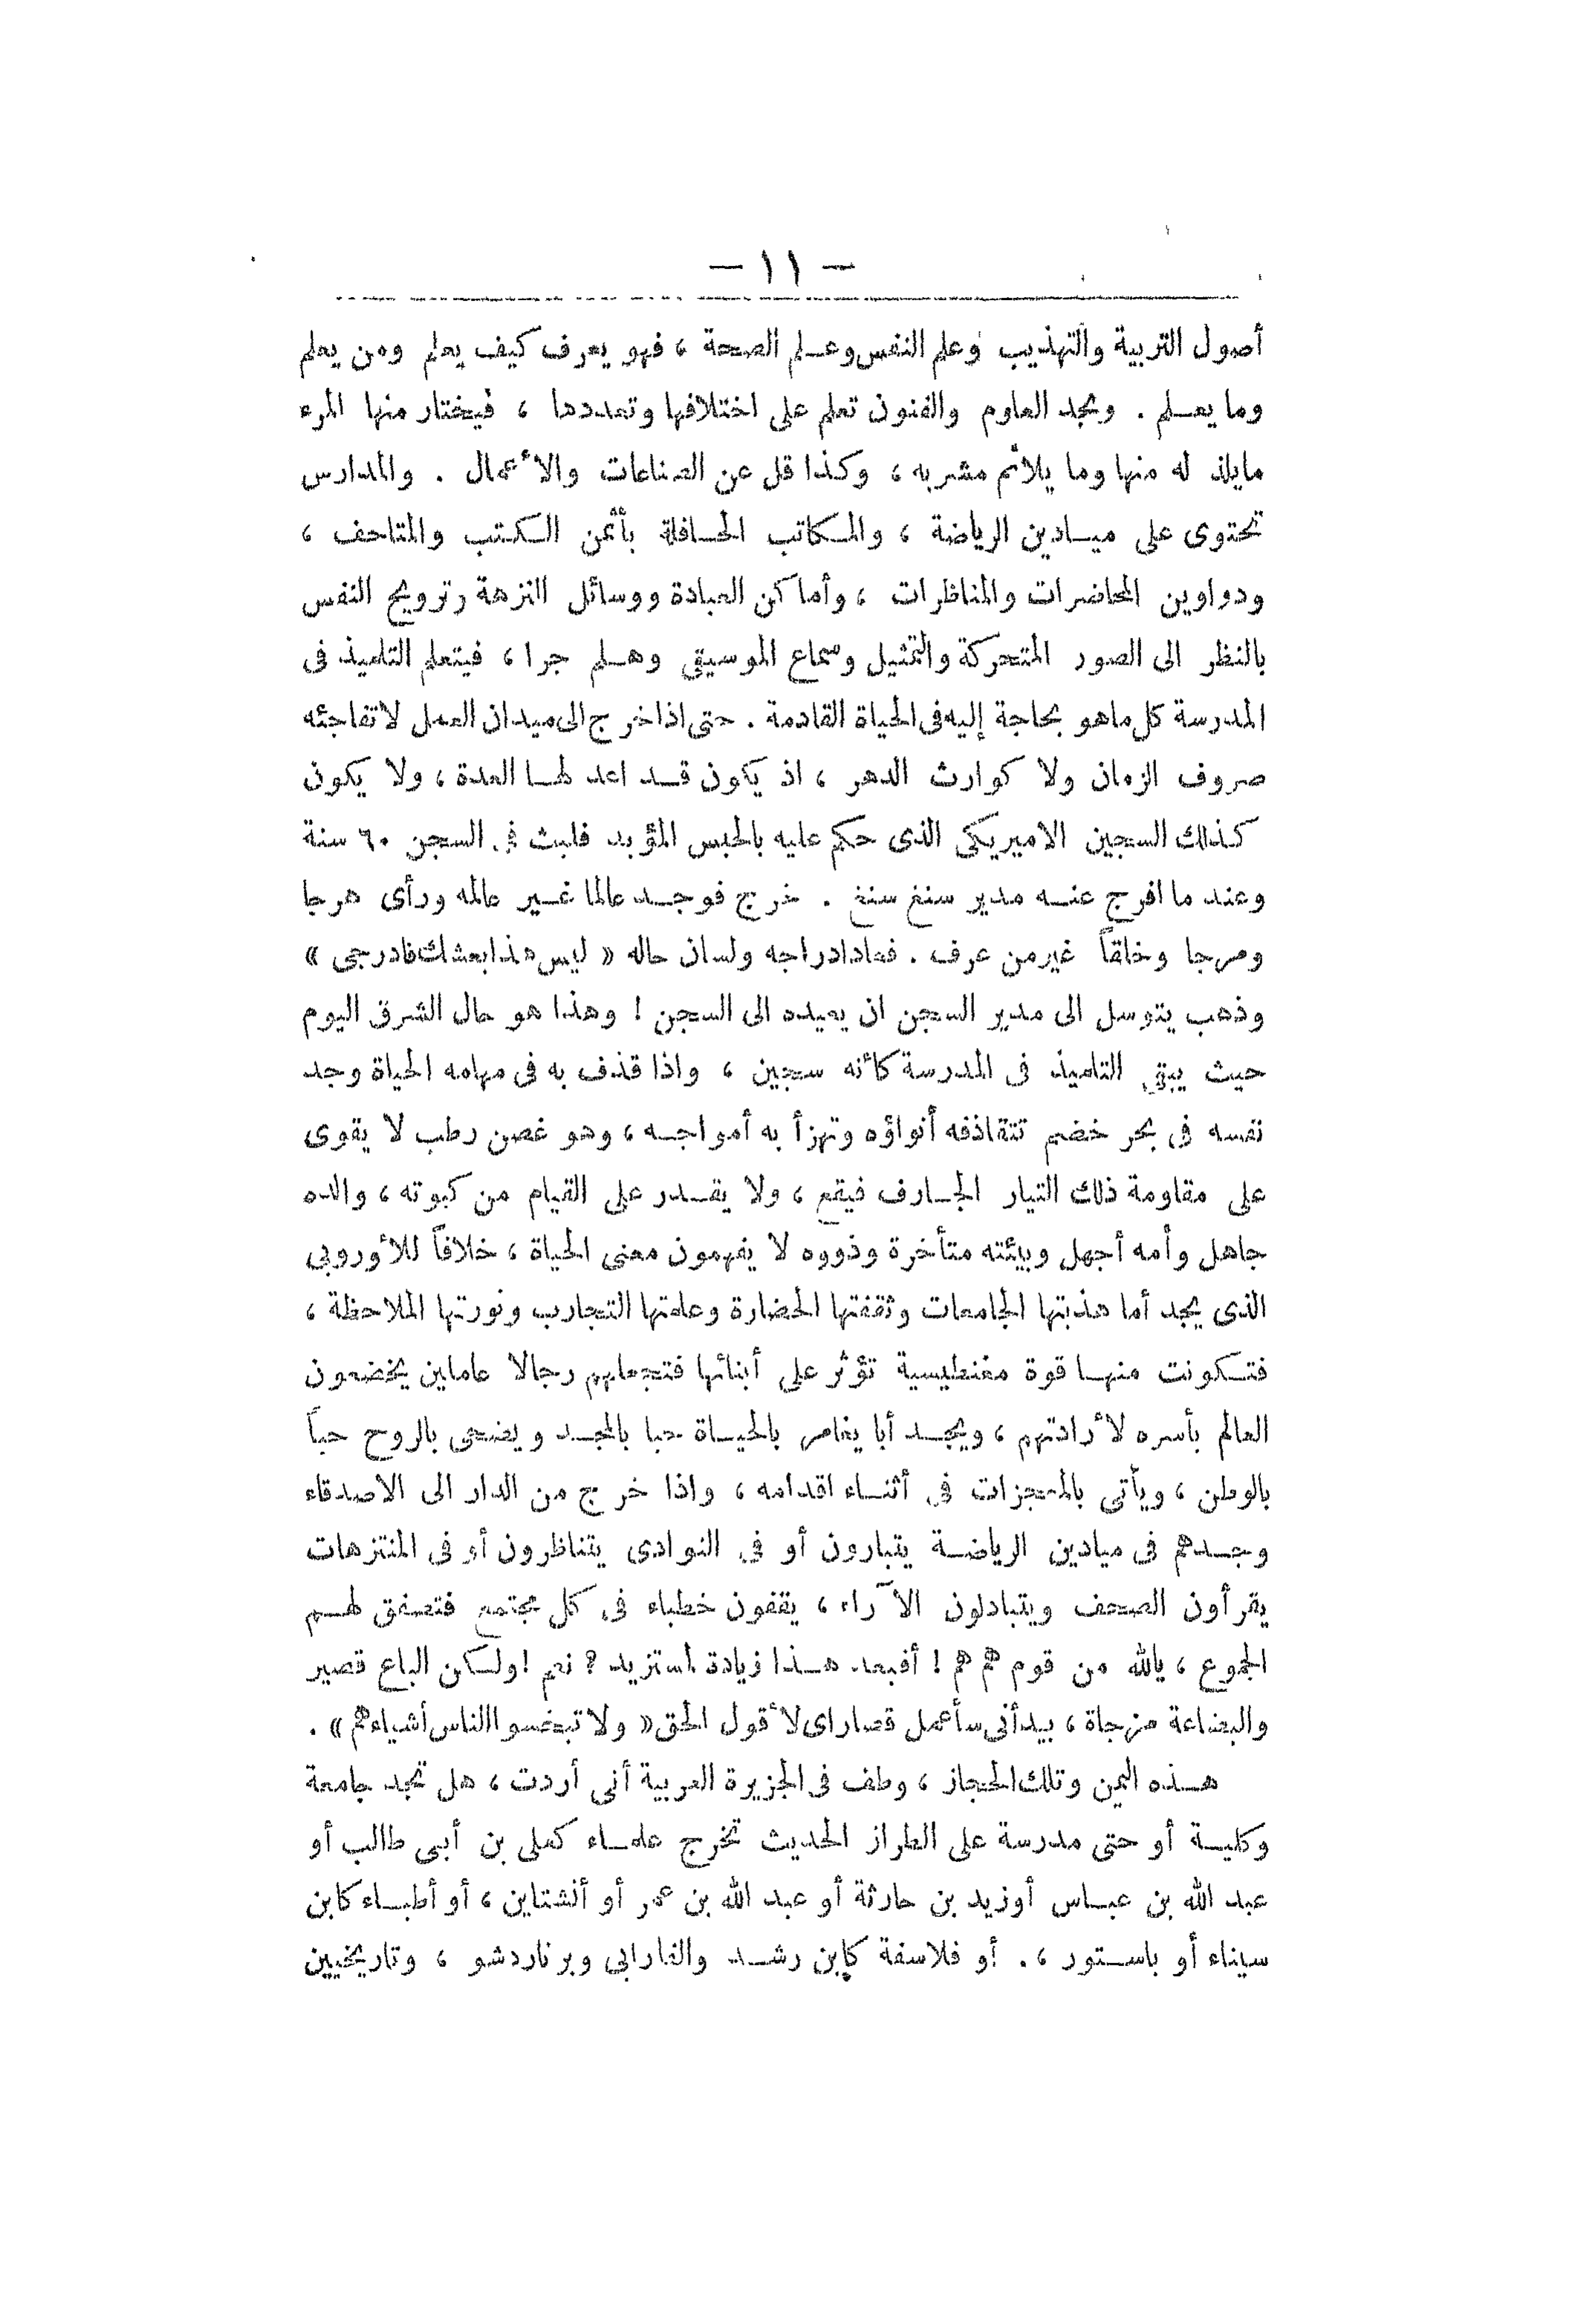 — ١١ —
أصول التربية والتهذيب وعلم النفس وعلم الصحة ، فهو يعرف كيف يعلم ومن يعلم
وما يعلم . ويجد العلوم والفنون تعلم على اختلافها وتعددها ، فيختار منها المرء
مايلذ له منها وما يلائم مشربه ، وكذا قل عن الصناعات والأعمال . والمدارس
تحتوى على ميادين الرياضة ، والمكاتب الحافلة بأثمن الكتب والمتاحف ،
ودواوين المحاضرات والمناظرات ، وأماكن العبادة ووسائل النزهة وترويح النفس
بالنظر الى الصور المتحركة والتمثيل وسماع الموسيقى وهلم جرا ، فيتعلم التلميذ فى
المدرسة كل ماهو بحاجة إليه فى الحياة القادمة . حتى اذا خرج الى ميدان العمل لاتفاجئه
صروف الزمان ولا كوارث الدهر ، اذ يكون قد اعد لها العدة ، ولا يكون
كذلك السجين الاميريكى الذى حكم عليه بالحبس المؤبد فلبث فى السجن ٦٠ سنة
وعند ما افرج عنه مدير سنغ سنغ . خرج فوجد عالما غير عالمه ورأى هرجا
ومرجا وخلقاً غير من عرف . فعاد ادراجه ولسان حاله « ليس هذا بعشك فادرجى »
وذهب يتوسل الى مدير السجن ان يعيده الى السجن ! وهذا هو حال الشرق اليوم
حيث يبقى التلميذ فى المدرسة كأنه سجين ، واذا قذف به فى مهامه الحياة وجد
نفسه فى بحر خضم تتقاذفه أنواؤه وتهزأ به أمواجه ، وهو غصن رطب لا يقوى
على مقاومة ذلك التيار الجارف فيقع ، ولا يقدر على القيام من كبوته ، والده
جاهل وأمه أجهل وبيئته متأخرة وذووه لا يفهمون معنى الحياة ، خلافاً للأوروبى
الذى يجد أما هذبتها الجامعات وثقفتها الحضارة وعلمتها التجارب ونورتها الملاحظة ،
فتكونت منها قوة مغنطيسية تؤثر على أبنائها فتجعلهم رجالا عاملين يخضعون
العالم بأسره لأرادتهم ، ويجد أبا يغامر بالحياة حبا بالمجد ويضحى بالروح حباً
بالوطن ، ويأتى بالمعجزات فى أثناء اقدامه ، واذا خرج من الدار الى الاصدقاء
وجدهم فى ميادين الرياضة يتبارون أو فى النوادى يتناظرون أو فى المنتزهات
يقرأون الصحف ويتبادلون الآراء ، يقفون خطباء فى كل مجتمع فتصفق لهم
الجموع ، يالله من قوم هم هم ! أفبعد هذا زيادة لمستزيد ؟ نعم ! ولكن الباع قصير
والبضاعة مزجاة ، بيد أنى سأعمل قصاراى لأقول الحق « ولا تبخسوا الناس أشياءهم » .
هذه اليمن وتلك الحجاز ، وطف فى الجزيرة العربية أنى أردت ، هل تجد جامعة
وكلية أو حتى مدرسة على الطراز الحديث تخرج علماء كعلى بن أبى طالب أو
عبد الله بن عباس أوزيد بن حارثة أو عبد الله بن عمر أو أنشتاين ، أو أطباء كابن
سيناء أو باستور ، . أو فلاسفة كابن رشد والفارابى وبرناردشو ، وتاريخيين